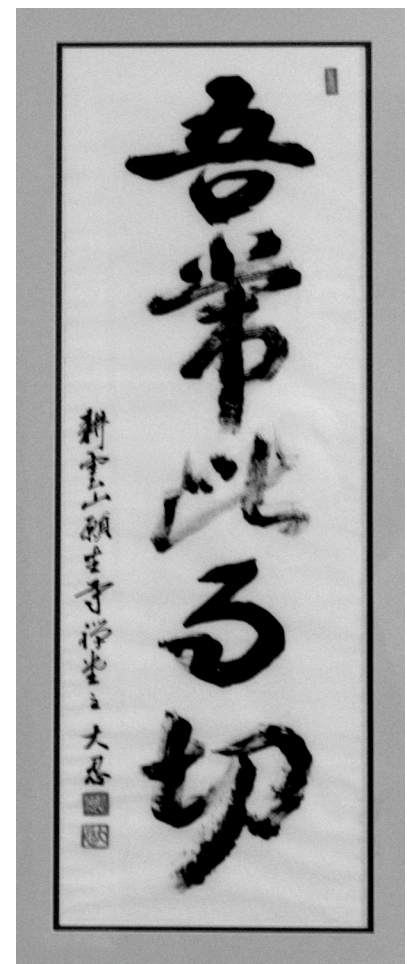 吾常此切
耕雲山願生寺禅堂大忍